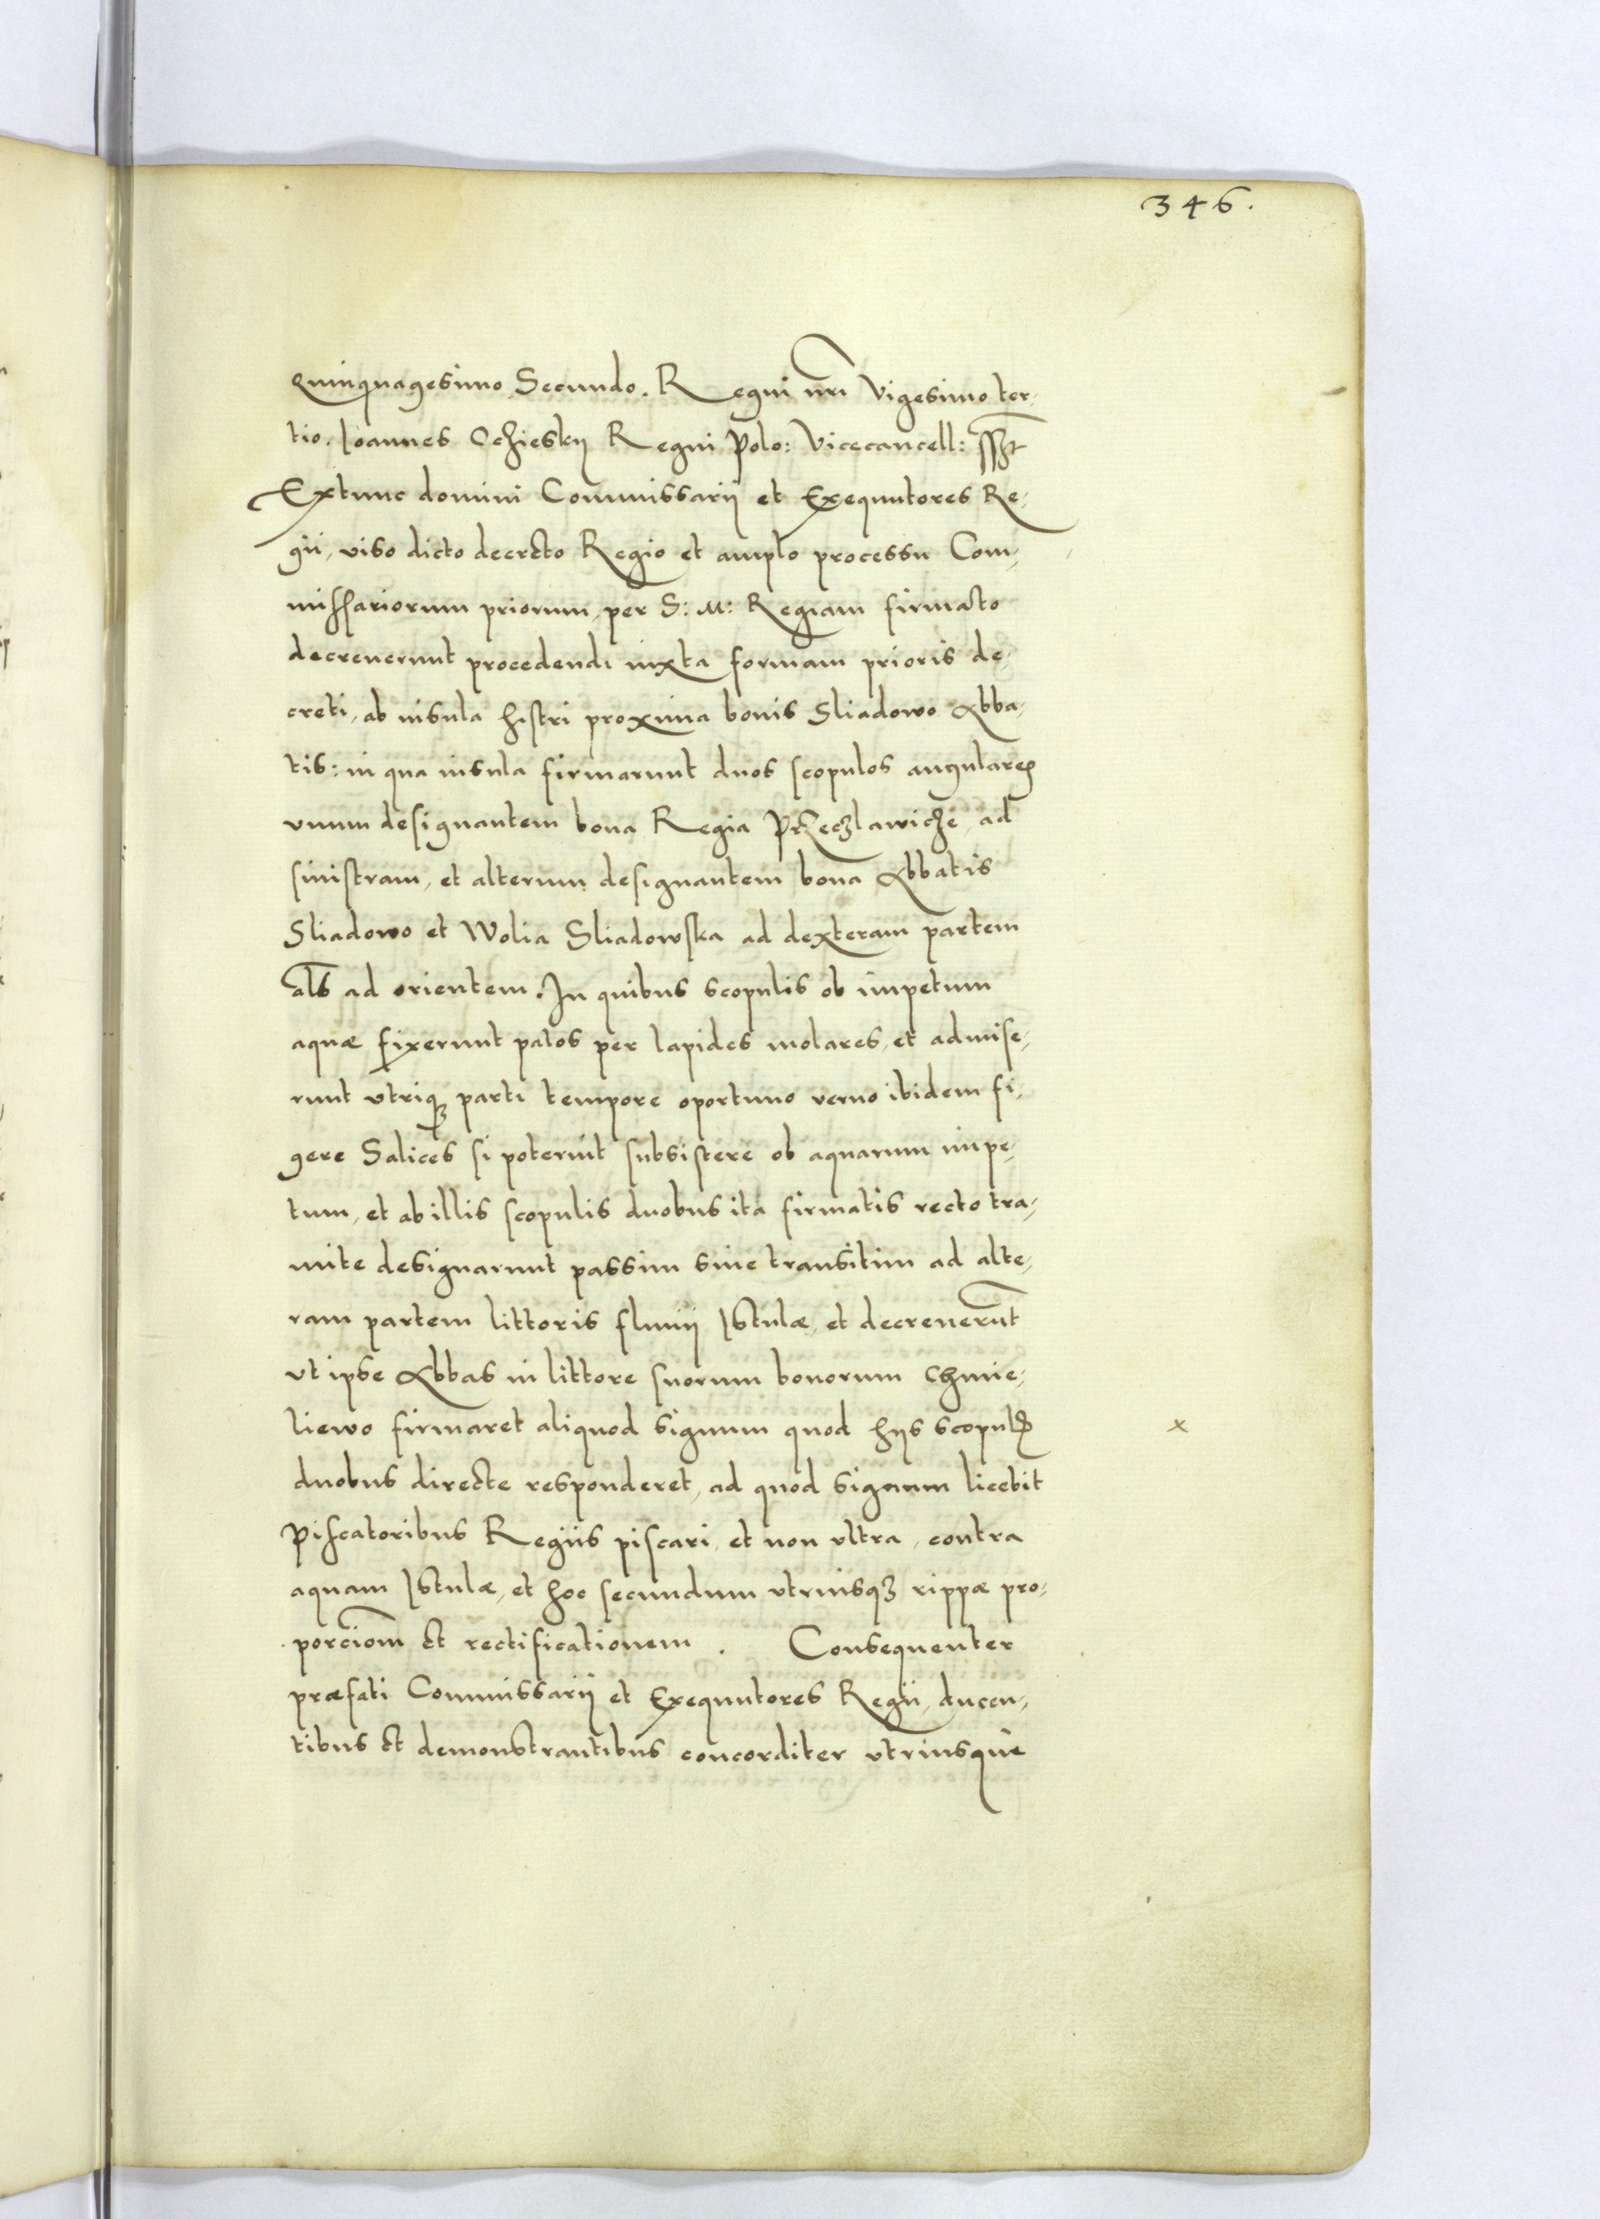 346.
Quinquagesimo Secundo. Regni nri Vigesimo ter-
tio. Joannes Oczieskÿ Regni Polo: Vicecancell: sszt
Extunc domini Commissarij et Exequutores Re-
gii, viso dicto decreto Regio et amplo processu Com-
missariorum priorum, per S: M: Regiam firmato
decreuerunt procedendi iuxta formam prioris de-
creti, ab insula histri proxima bonis Sliadowo Abba-
tis: in qua insula firmarunt duos scopulos angulares
vnum designantem bona Regia Przeczlawicze, ad
sinistram, et alterum designantem bona Abbatis
Sliadowo et Wolia Sliadowska ad dexteram partem
als ad orientem. In quibus scopulis ob impetum
aquæ fixerunt palos per lapides molares, et admise-
runt vtriqꝫ parti tempore oportuno verno ibidem fi-
gere Salices si poterint subsistere ob aquarum impe-
tum, et ab illis scopulis duobus ita firmatis recto tra-
mite designarunt passim siue transitim ad alte-
ram partem littoris fluuij Istulæ, et decreuerunt
vt ipse Abbas in littore suorum bonorum Chmie-
liewo firmaret aliquod signum quod hijs scopulis
x
duobus directe responderet, ad quod signum licebit
Piscatoribus Regiis piscari, et non vltra, contra
aquam Istulæ, et hoc secundum vtriusqꝫ rippæ pro-
porciom et rectificationem. Consequenter
præfati Commissarij et Exequutores Regii, ducen-
tibus et demonstrantibus concorditer vtriusque